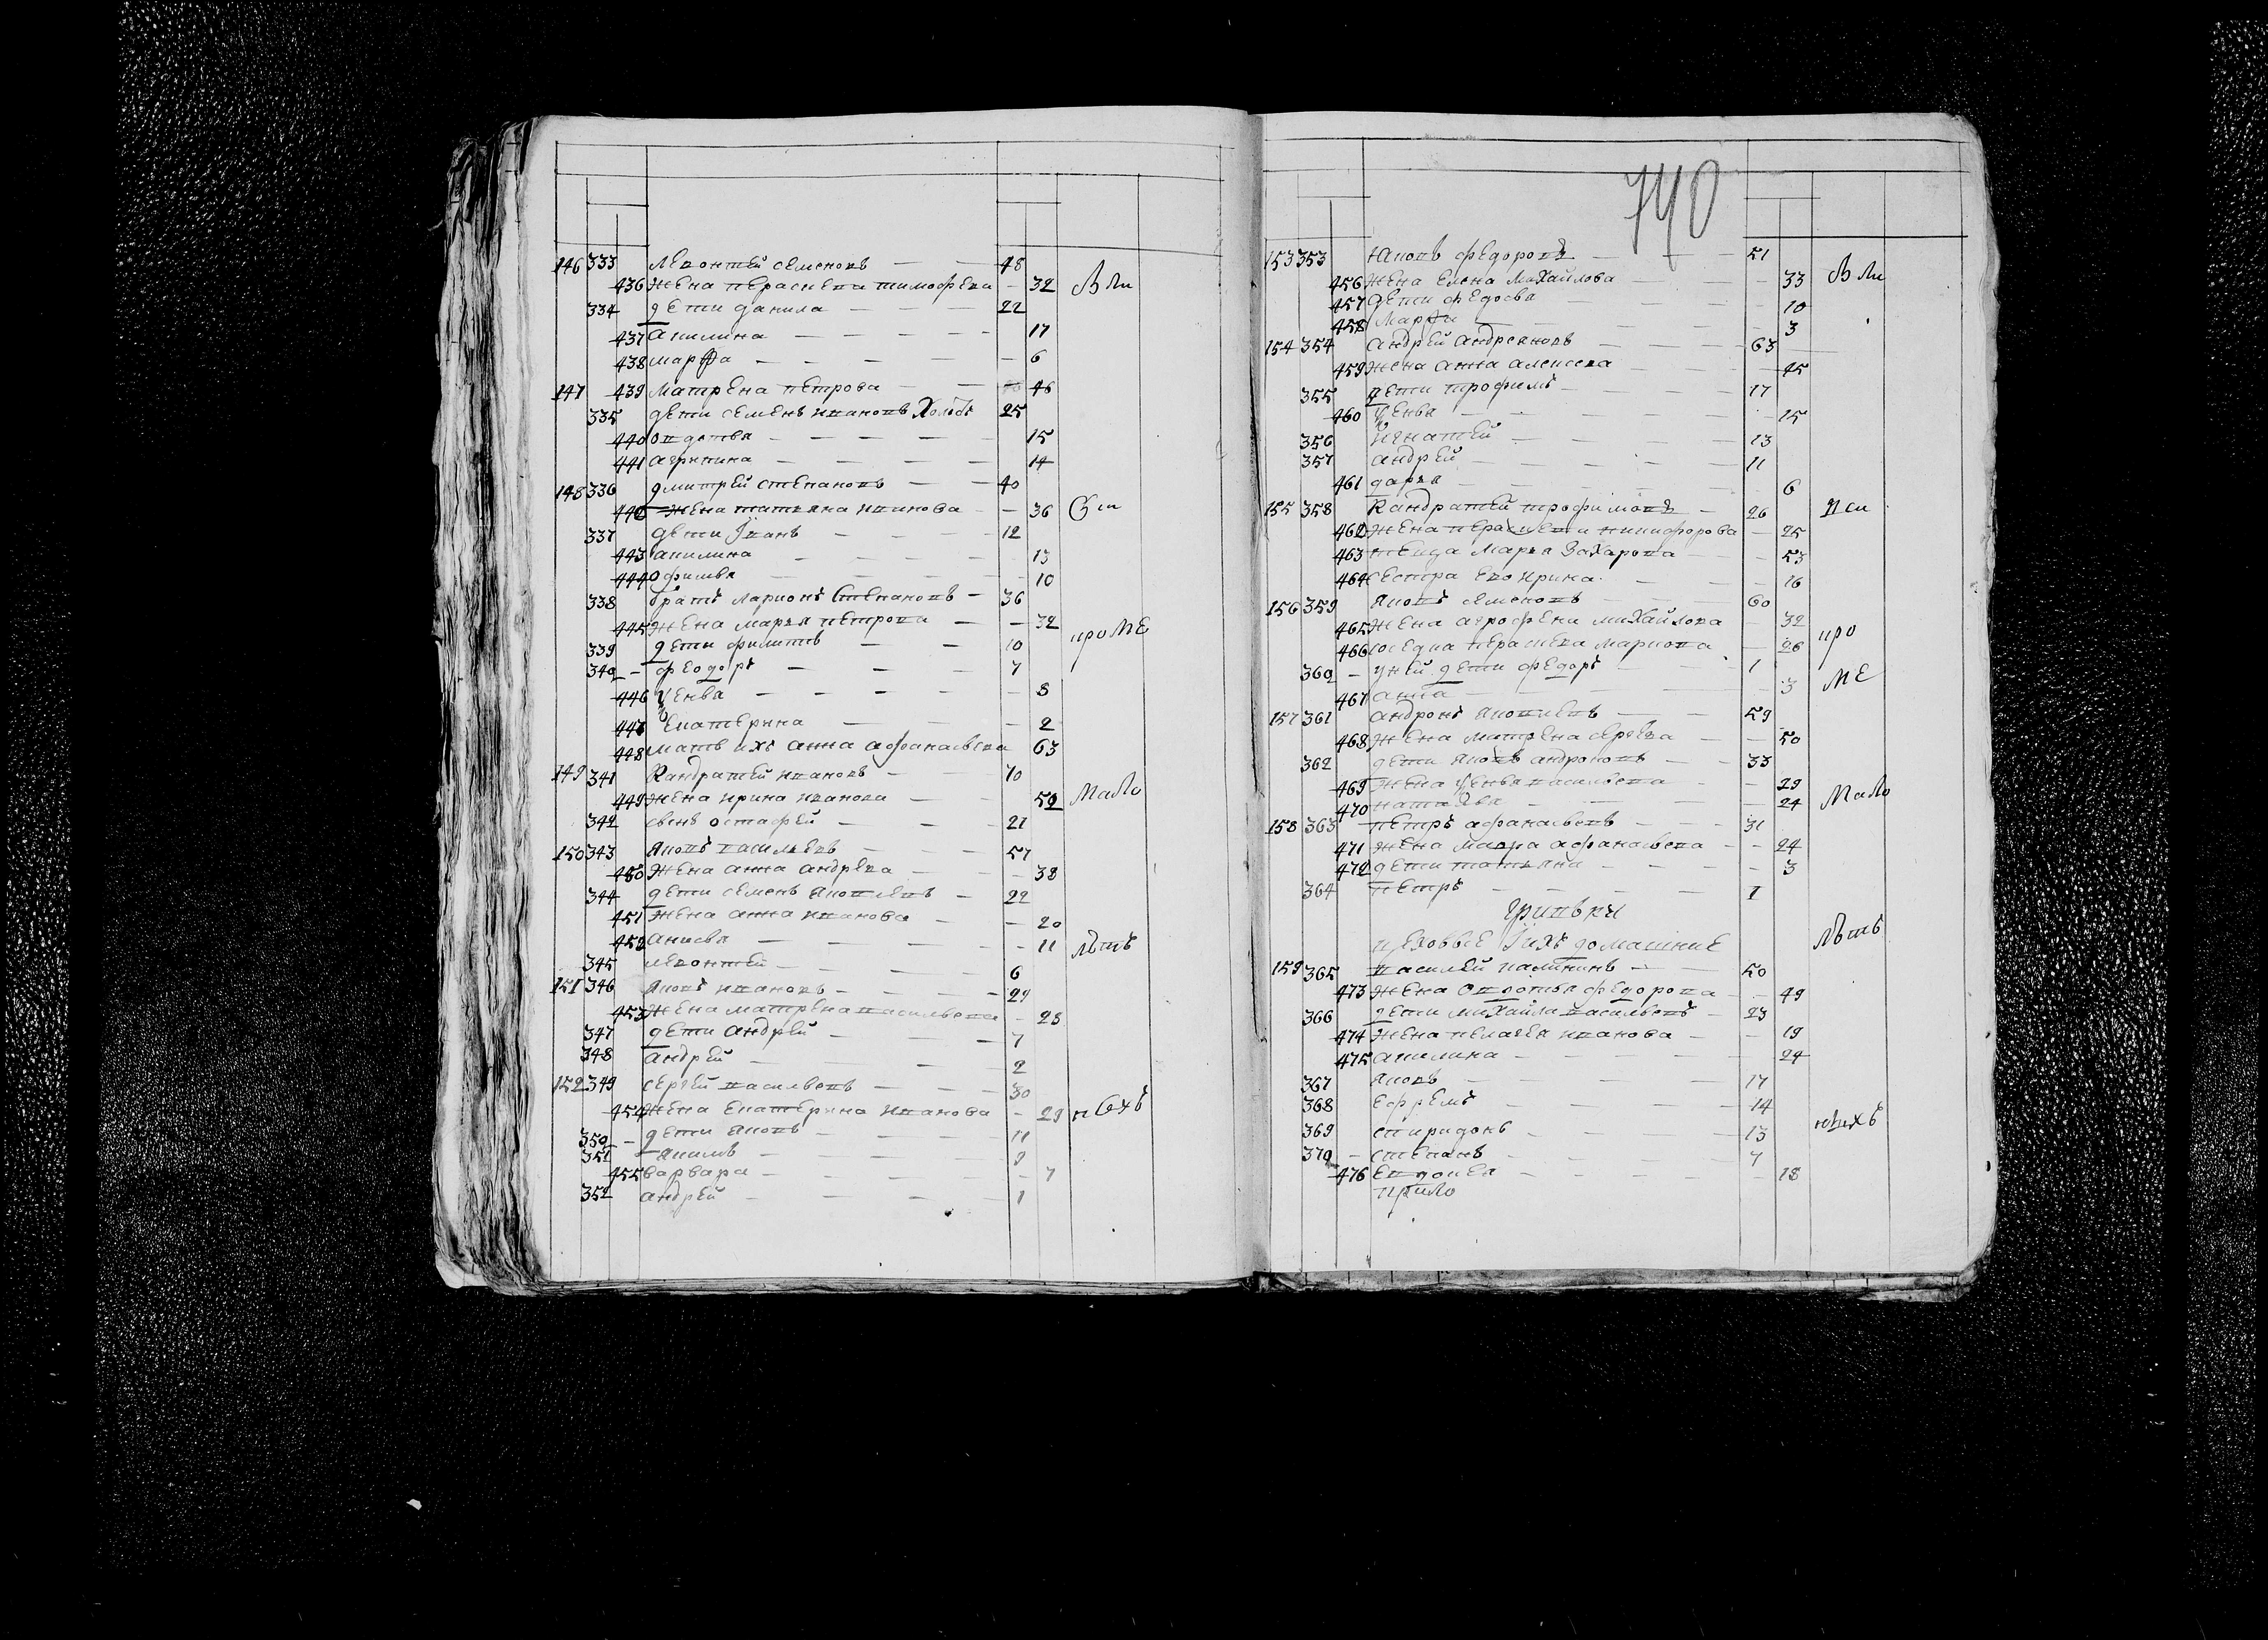 146 333 Левонтей семеновъ — — 48
436 жена Параскева тимофеева — 32 Вли
334 дети данила — — — 22
437 акилина — — — 17
438 марфа — — — — 6
147 439 матрена петрова — — 46
335 дети семенъ ивановъ Холостъ 25
440 овдотья — — — — 15
441 агрипина — — — — 14
148 336 дмитрей степановъ — — 40
442 жена татьяна иванова — — 36
337 дети Iванъ — — — 12
443 акилина — 13
444 офимья — — — 10
338 братъ ларионъ степановъ — 36
445 жена марья петрова — — 32 проМЕ
339 дети филиппъ — — 10
340 — феодоръ — — — 7
446 уенва — — — — 8
447 Екатерина — — 2
448 мать ихъ анна афанасьева 63
149 341 Кандратей ивановъ — — 70
449 жена ирина иванова — — 50 Мало
342 сынъ остафей — — — 21
150 343 яковъ васильевъ — — 57
450 жена анна андреева — — 38
344 дети семенъ яковлевъ — 22
451 жена анна иванова — — 20
452 анисья — — — — 11 лѣтъ
345 левонтей — — — — 6
151 346 яковъ ивановъ — — — 29
453 жена матрена васильева — 28
347 дети андрей — — 7
348 андрей — — — 2
152 349 сергей васильевъ — — 30
454 жена екатерина иванова — 29
350 — дети яковъ — — — 11
351 якимъ — — — 9
455 варвара — — — 7
352 андрей — — — — 1
740
153 353 яковъ федоровъ — — — 51
456 жена елена михайлова — — 33 Вли
457 дети федосья — 10
458 Марфа — — — 3
154 354 андрей андреяновъ — — 63
459 жена анна алексеева — — 45
355 дети трофимъ — — 17
460 уенва — — — 15
356 игнатей — — — 13
357 андрей — — — 11
461 дарья — — — 6
155 358 Кандратей трофимовъ — 26
462 жена параскева никифорова — 25
463 марья Захарова — — 53
464 сестра Ево ирина — — 16
156 359 яковъ семеновъ — — 60
465 жена агрофена михайлова — 32
466 параскева 26 про
360 — уней дети федоръ — — 1
467 анна — — 3 МЕ
157 361 андронъ яковлевъ — — 59
468 жена матрена сергеева — — 50
362 дети яковъ андроновъ — — 33
469 жена уенва васильева — — 29
470 наталья — — — 24 Мало
158 363 петръ афанасьевъ — — 31
471 жена мавра афанасьева — — 24
472 дети татьяна — — — 3
364 петръ — — — — 1
цеховые Iихъ домашние лѣтъ
159 365 василей калининъ — — 50
473 жена овдотья федорова — — 49
366 дети михайла васильевъ — 23
474 жена пелагея иванова — — 19
475 акилина — — — 24
367 яковъ — — — 17
368 Ефремъ — — — 14
369 спиридонъ — — — 13
370 — степанъ — — — 7
476 Евдокея — — — 18